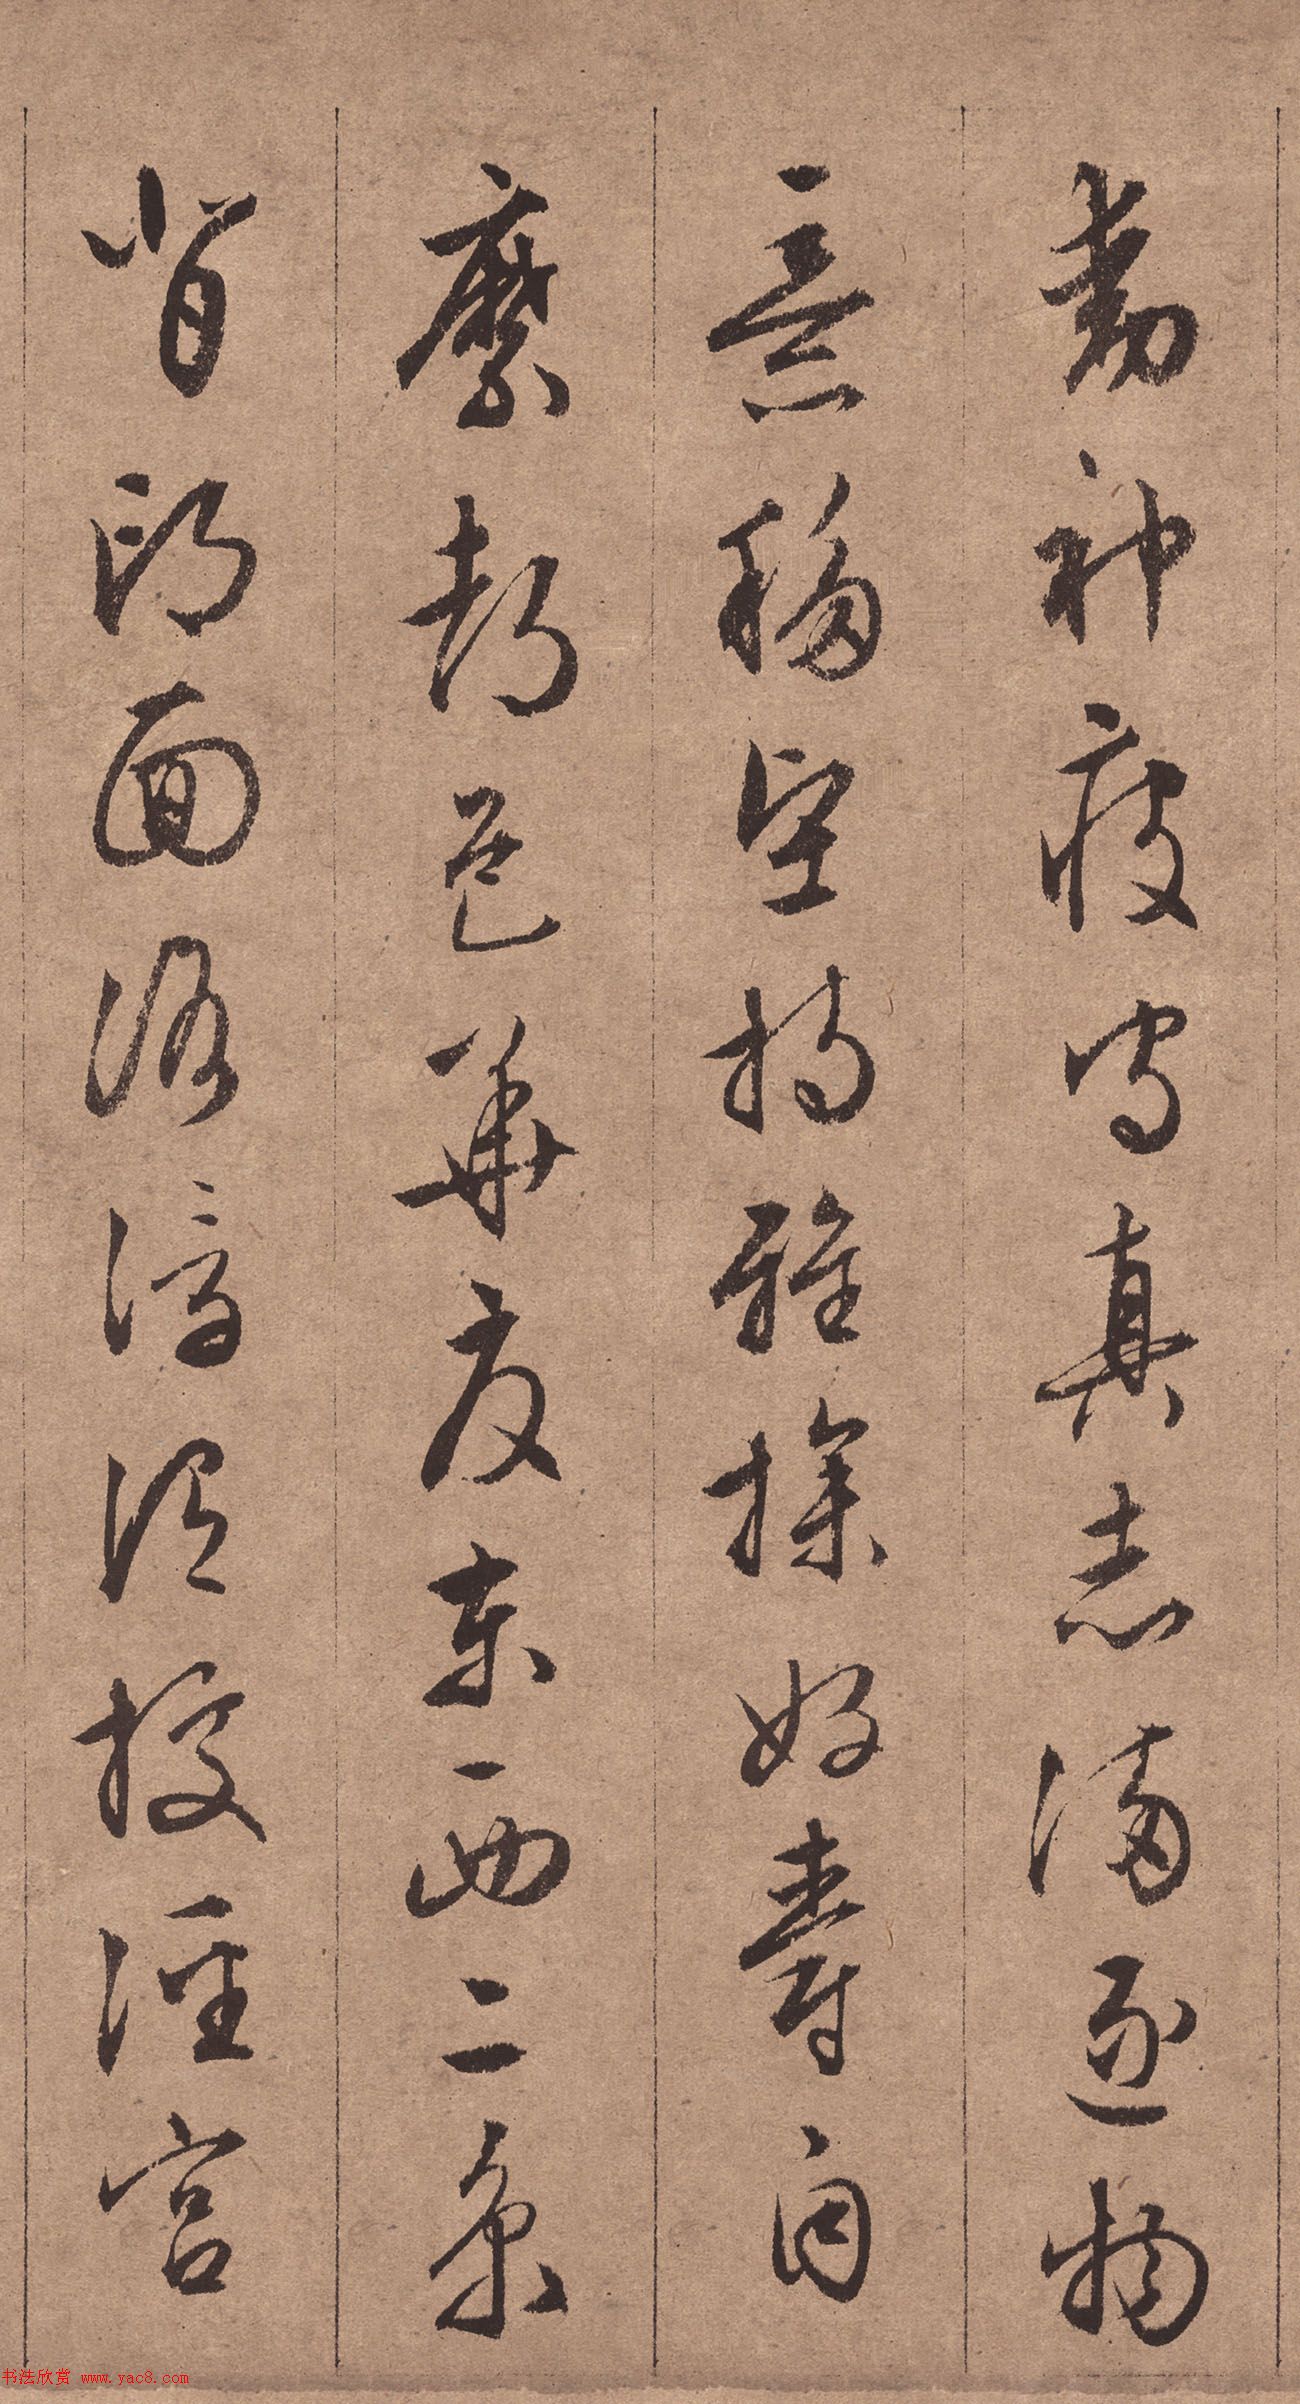 動神疲守真志滿逐物
意移堅持雅操好爵自
縻都邑華夏東西二京
背邙面洛浮渭據涇宮
书法欣赏 www.yac8.com